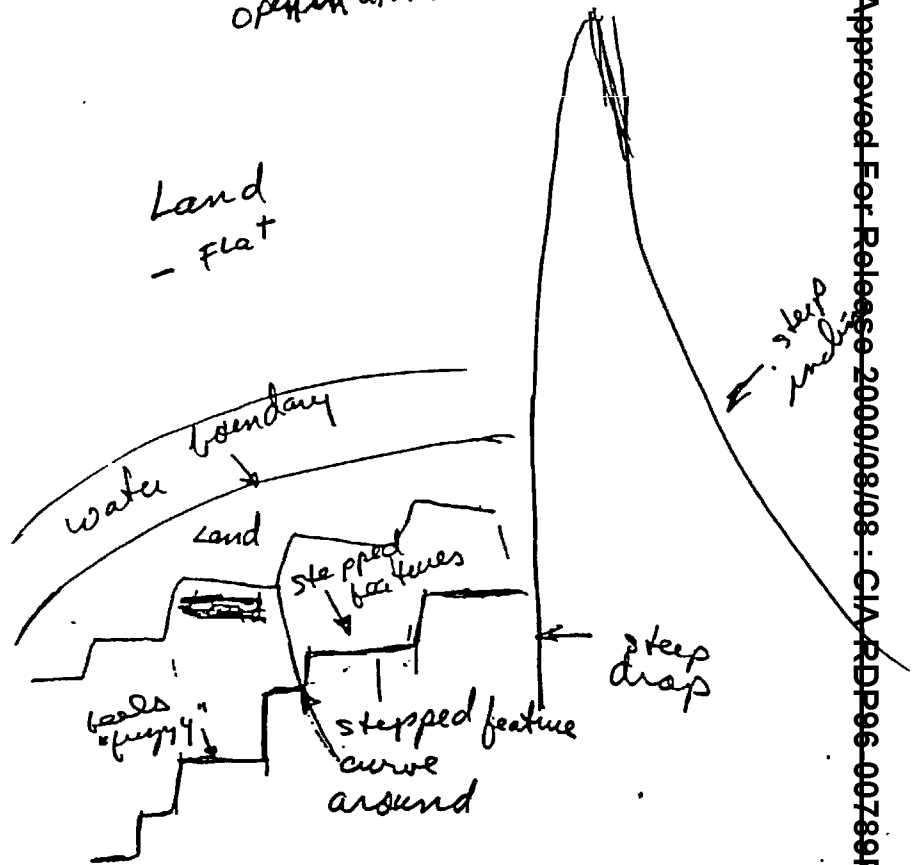 Land
- Flat
steep
water boundary
Land
stepped
features
steep
drop
feels
"fuzzy"
stepped feature
curve
around
Approved For Release 2000/08/08 : CIA-RDP96-00789R